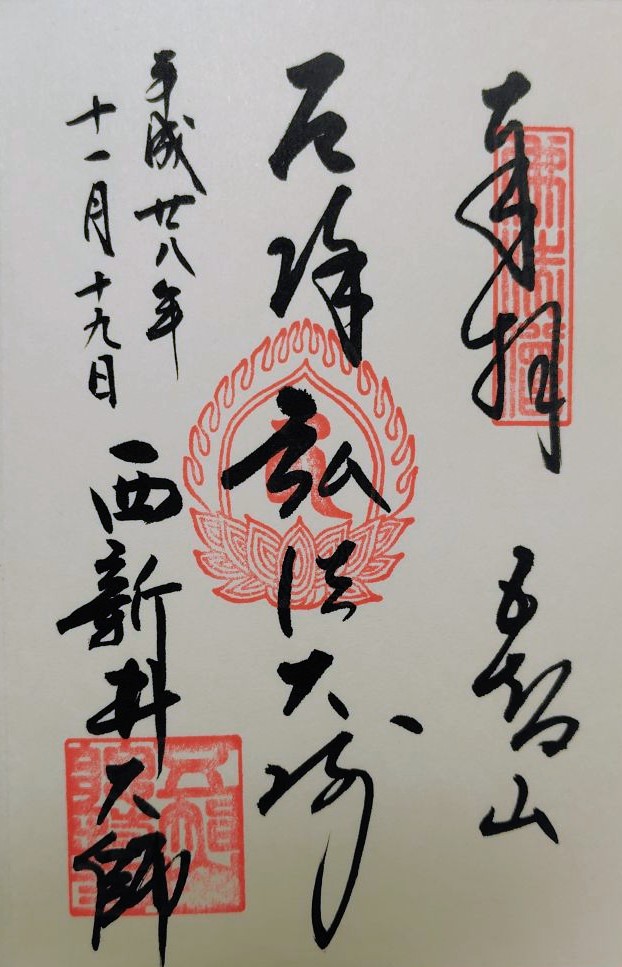 奉拝 五智山
厄除弘法大師
平成廿八年
十一月十九日
西新井大師